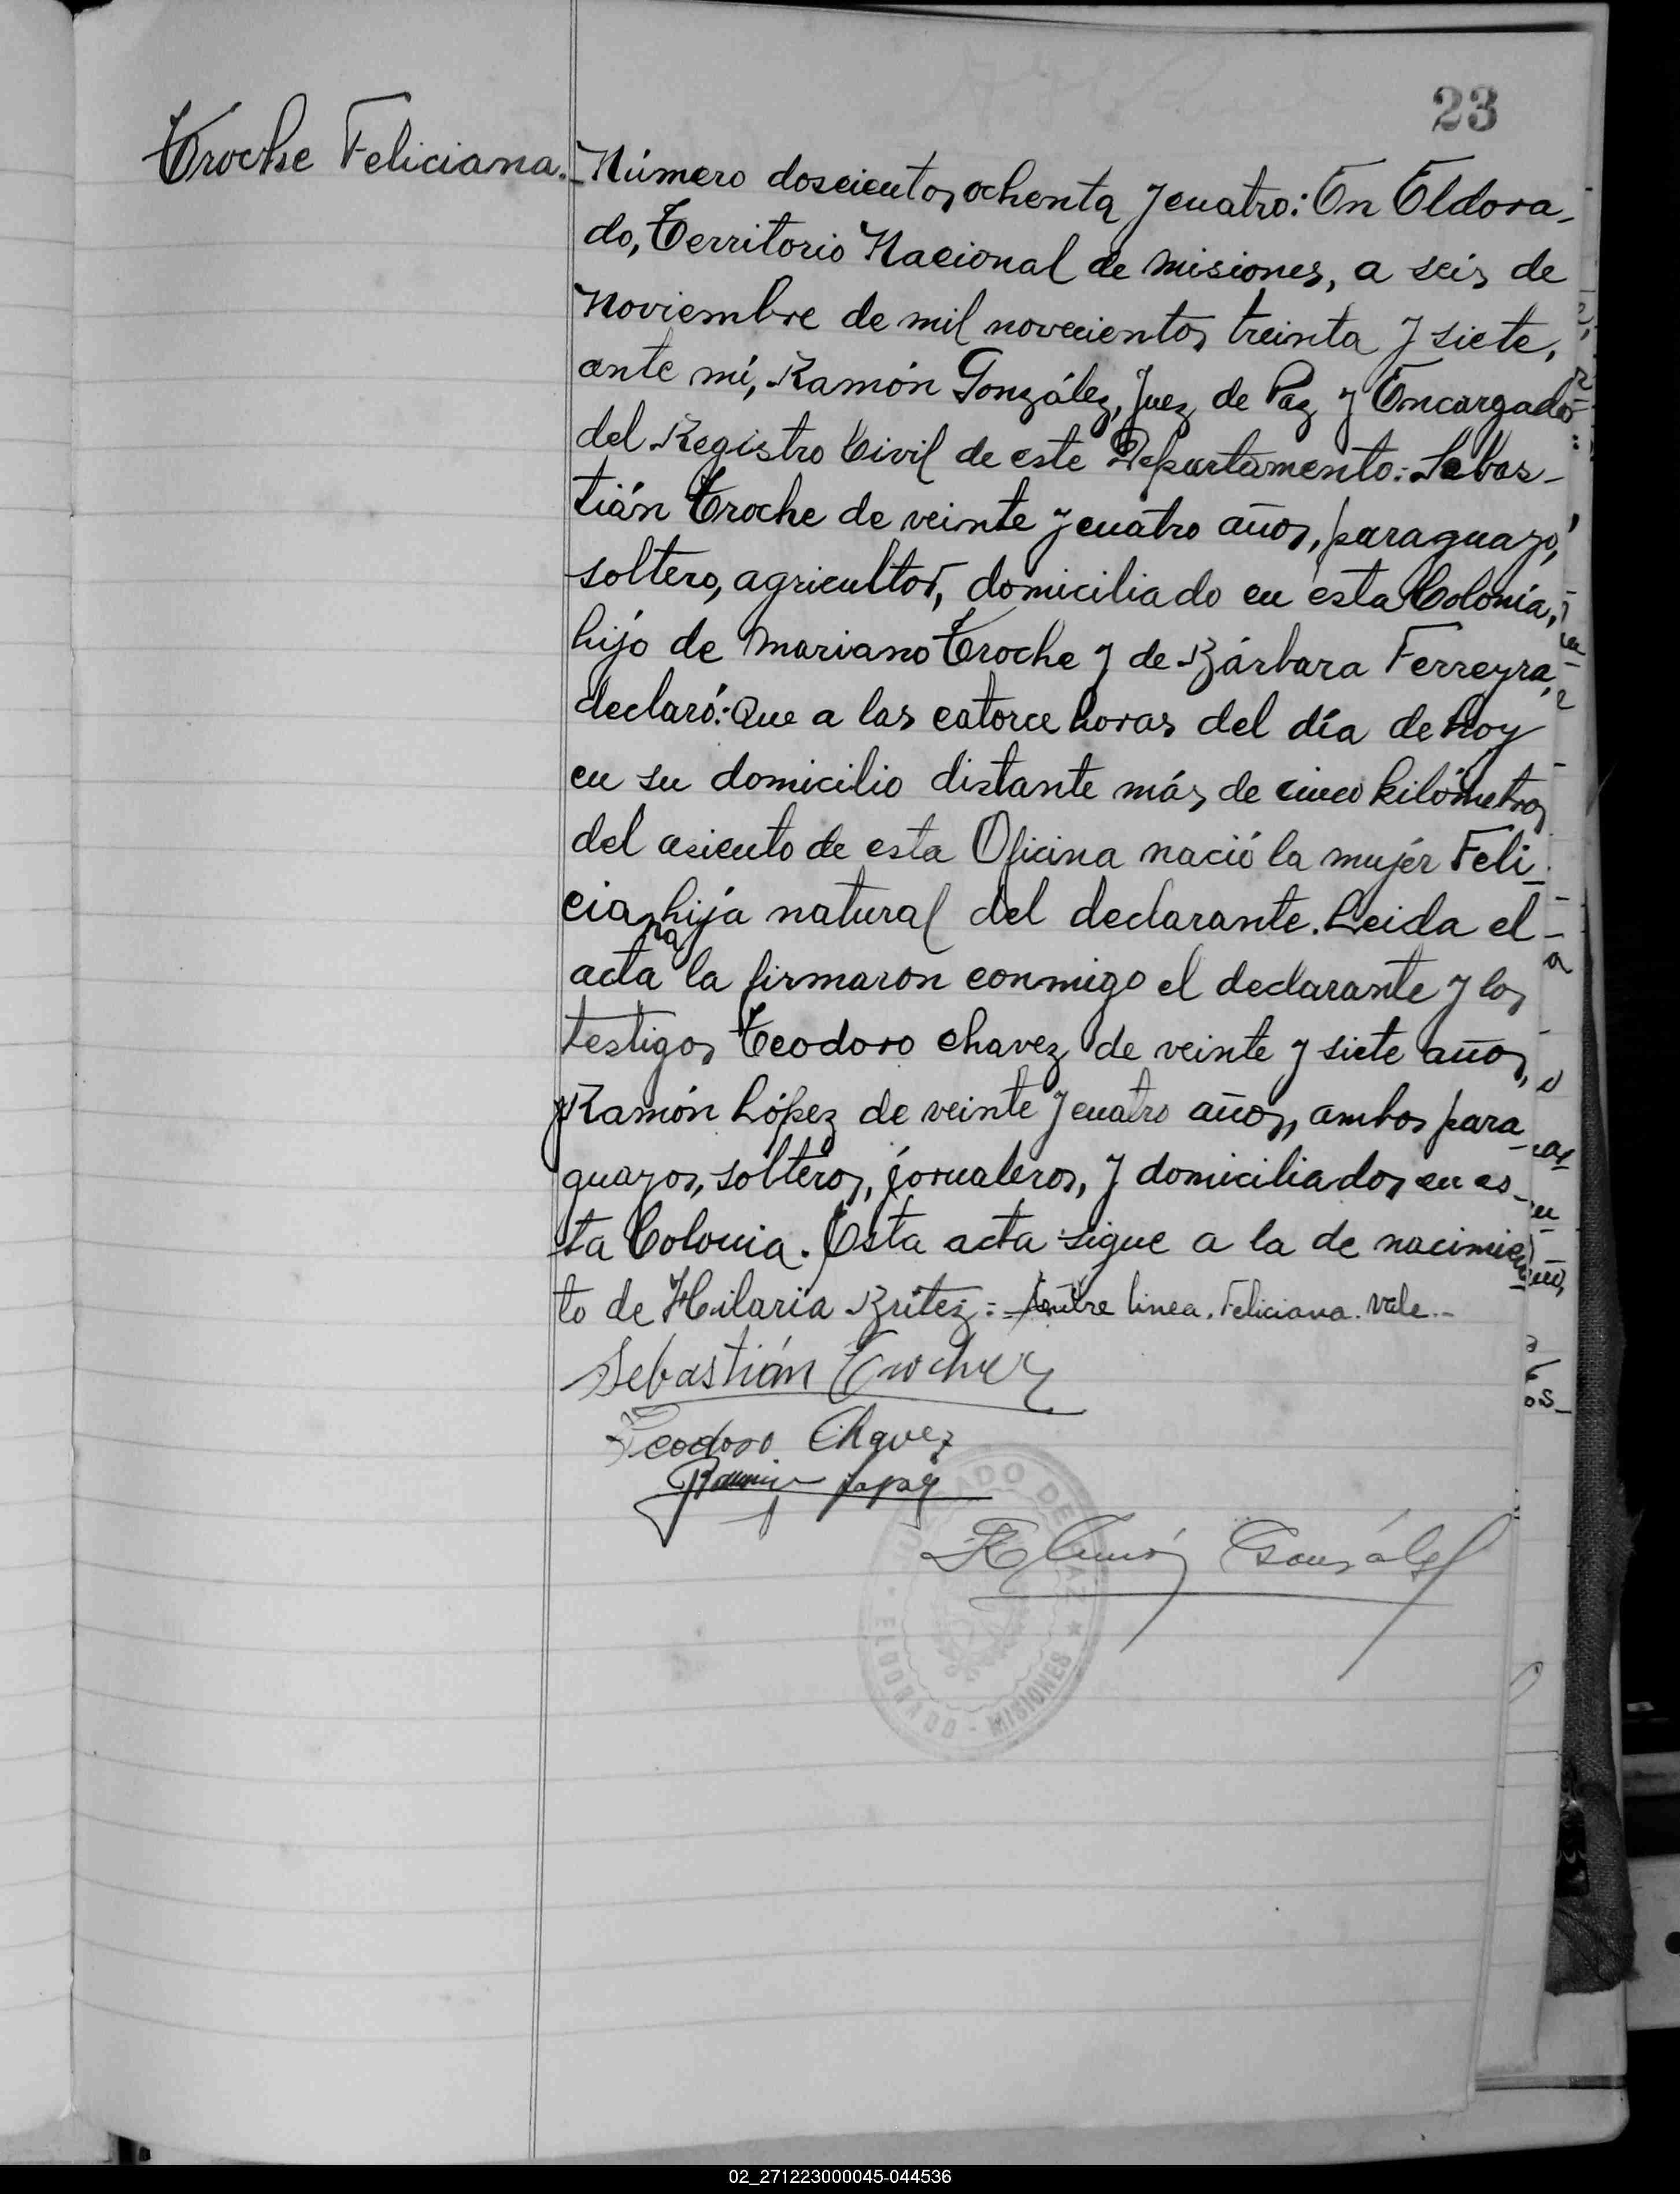 23
Troche Feliciana.
Número doscientos ochenta y cuatro: En Eldora-
do, Territorio Nacional de Misiones, a seis de
Noviembre de mil novecientos treinta y siete,
ante mí, Ramón González, Juez de Paz y Encargado
del Registro Civil de este Departamento: Sebas-
tián Troche de veinte y cuatro años, paraguayo,
soltero, agricultor, domiciliado en esta Colonia,
hijo de Mariano Troche y de Bárbara Ferreyra,
declaró: Que a las catorce horas del día de hoy
en su domicilio distante más de cinco kilómetros
del asiento de esta Oficina nació la mujér Feli-
ciana hija natural del declarante. Leida el
acta la firmaron conmigo el declarante y los
testigos Teodoro Chavez de veinte y siete años,
y Ramón López de veinte y cuatro años, ambos para-
guayos, solteros, jornaleros, y domiciliados en es-
ta Colonia. Esta acta sigue a la de nacimien-
to de Hilaria Britez:= Entre linea. Feliciana. Vale.-
Sebastián Troche
Teodoro Chavez
Ramón Lopez
Ramón González
JUZGADO DE PAZ
ELDORADO - MISIONES
02_271223000045-044536